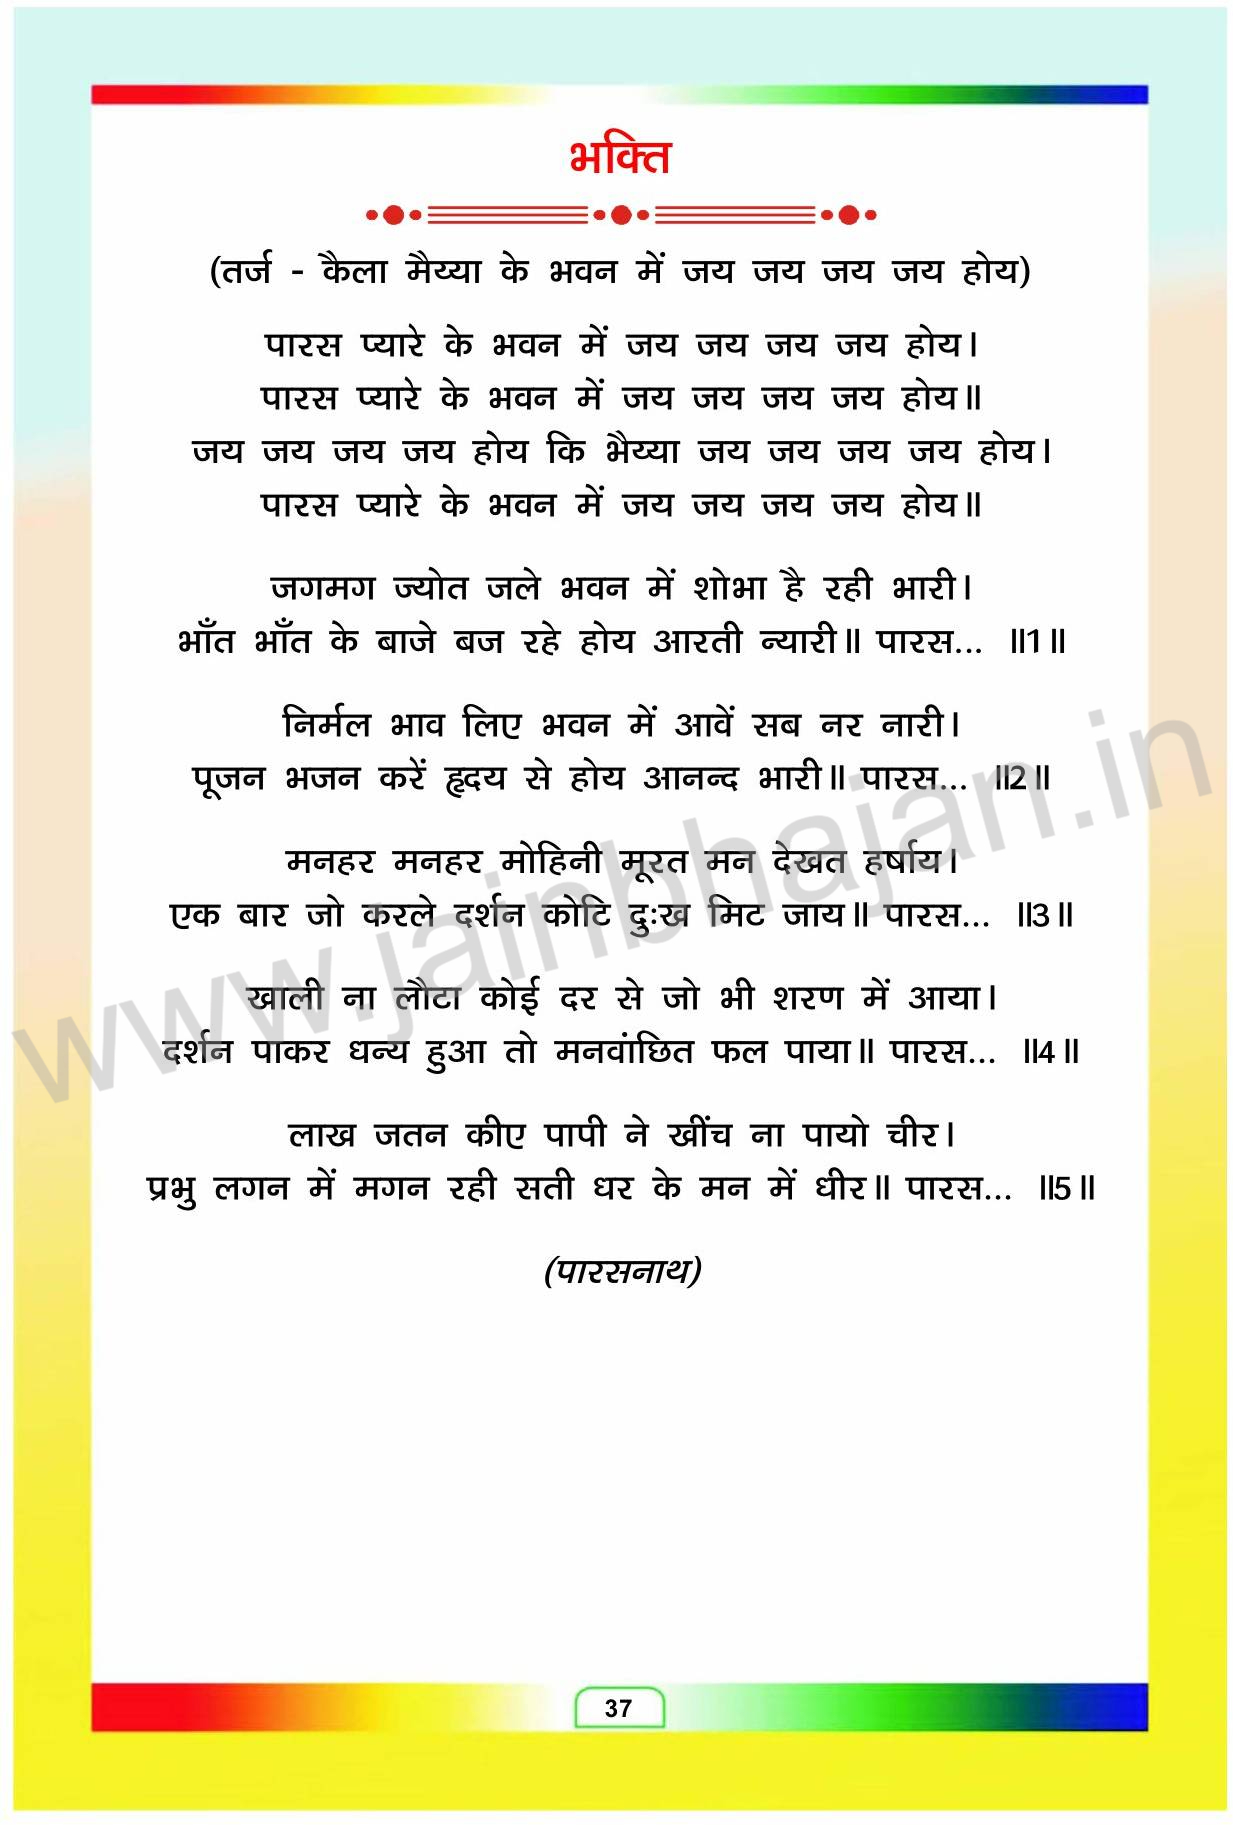 भक्ति
(तर्ज - कैला मैय्या के भवन में जय जय जय जय होय)
पारस प्यारे के भवन में जय जय जय जय होय।
पारस प्यारे के भवन में जय जय जय जय होय॥
जय जय जय जय होय कि भैय्या जय जय जय जय होय।
पारस प्यारे के भवन में जय जय जय जय होय॥
जगमग ज्योत जले भवन में शोभा है रही भारी।
भाँत भाँत के बाजे बज रहे होय आरती न्यारी॥ पारस... ॥1॥
निर्मल भाव लिए भवन में आवें सब नर नारी।
पूजन भजन करें हृदय से होय आनन्द भारी॥ पारस... ॥2॥
मनहर मनहर मोहिनी मूरत मन देखत हर्षाय।
एक बार जो करले दर्शन कोटि दुःख मिट जाय॥ पारस... ॥3॥
खाली ना लौटा कोई दर से जो भी शरण में आया।
दर्शन पाकर धन्य हुआ तो मनवांछित फल पाया॥ पारस... ॥4॥
लाख जतन कीए पापी ने खींच ना पायो चीर।
प्रभु लगन में मगन रही सती धर के मन में धीर॥ पारस... ॥5॥
(पारसनाथ)
www.jainbhajan.in
37